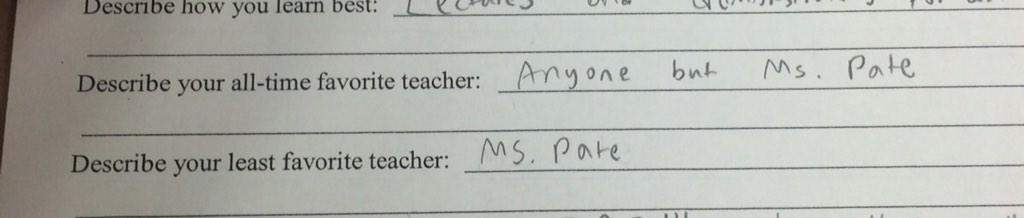 Describe how you learn best: Lectures and
Describe your all-time favorite teacher: Anyone but Ms. Pate
Describe your least favorite teacher: Ms. Pate